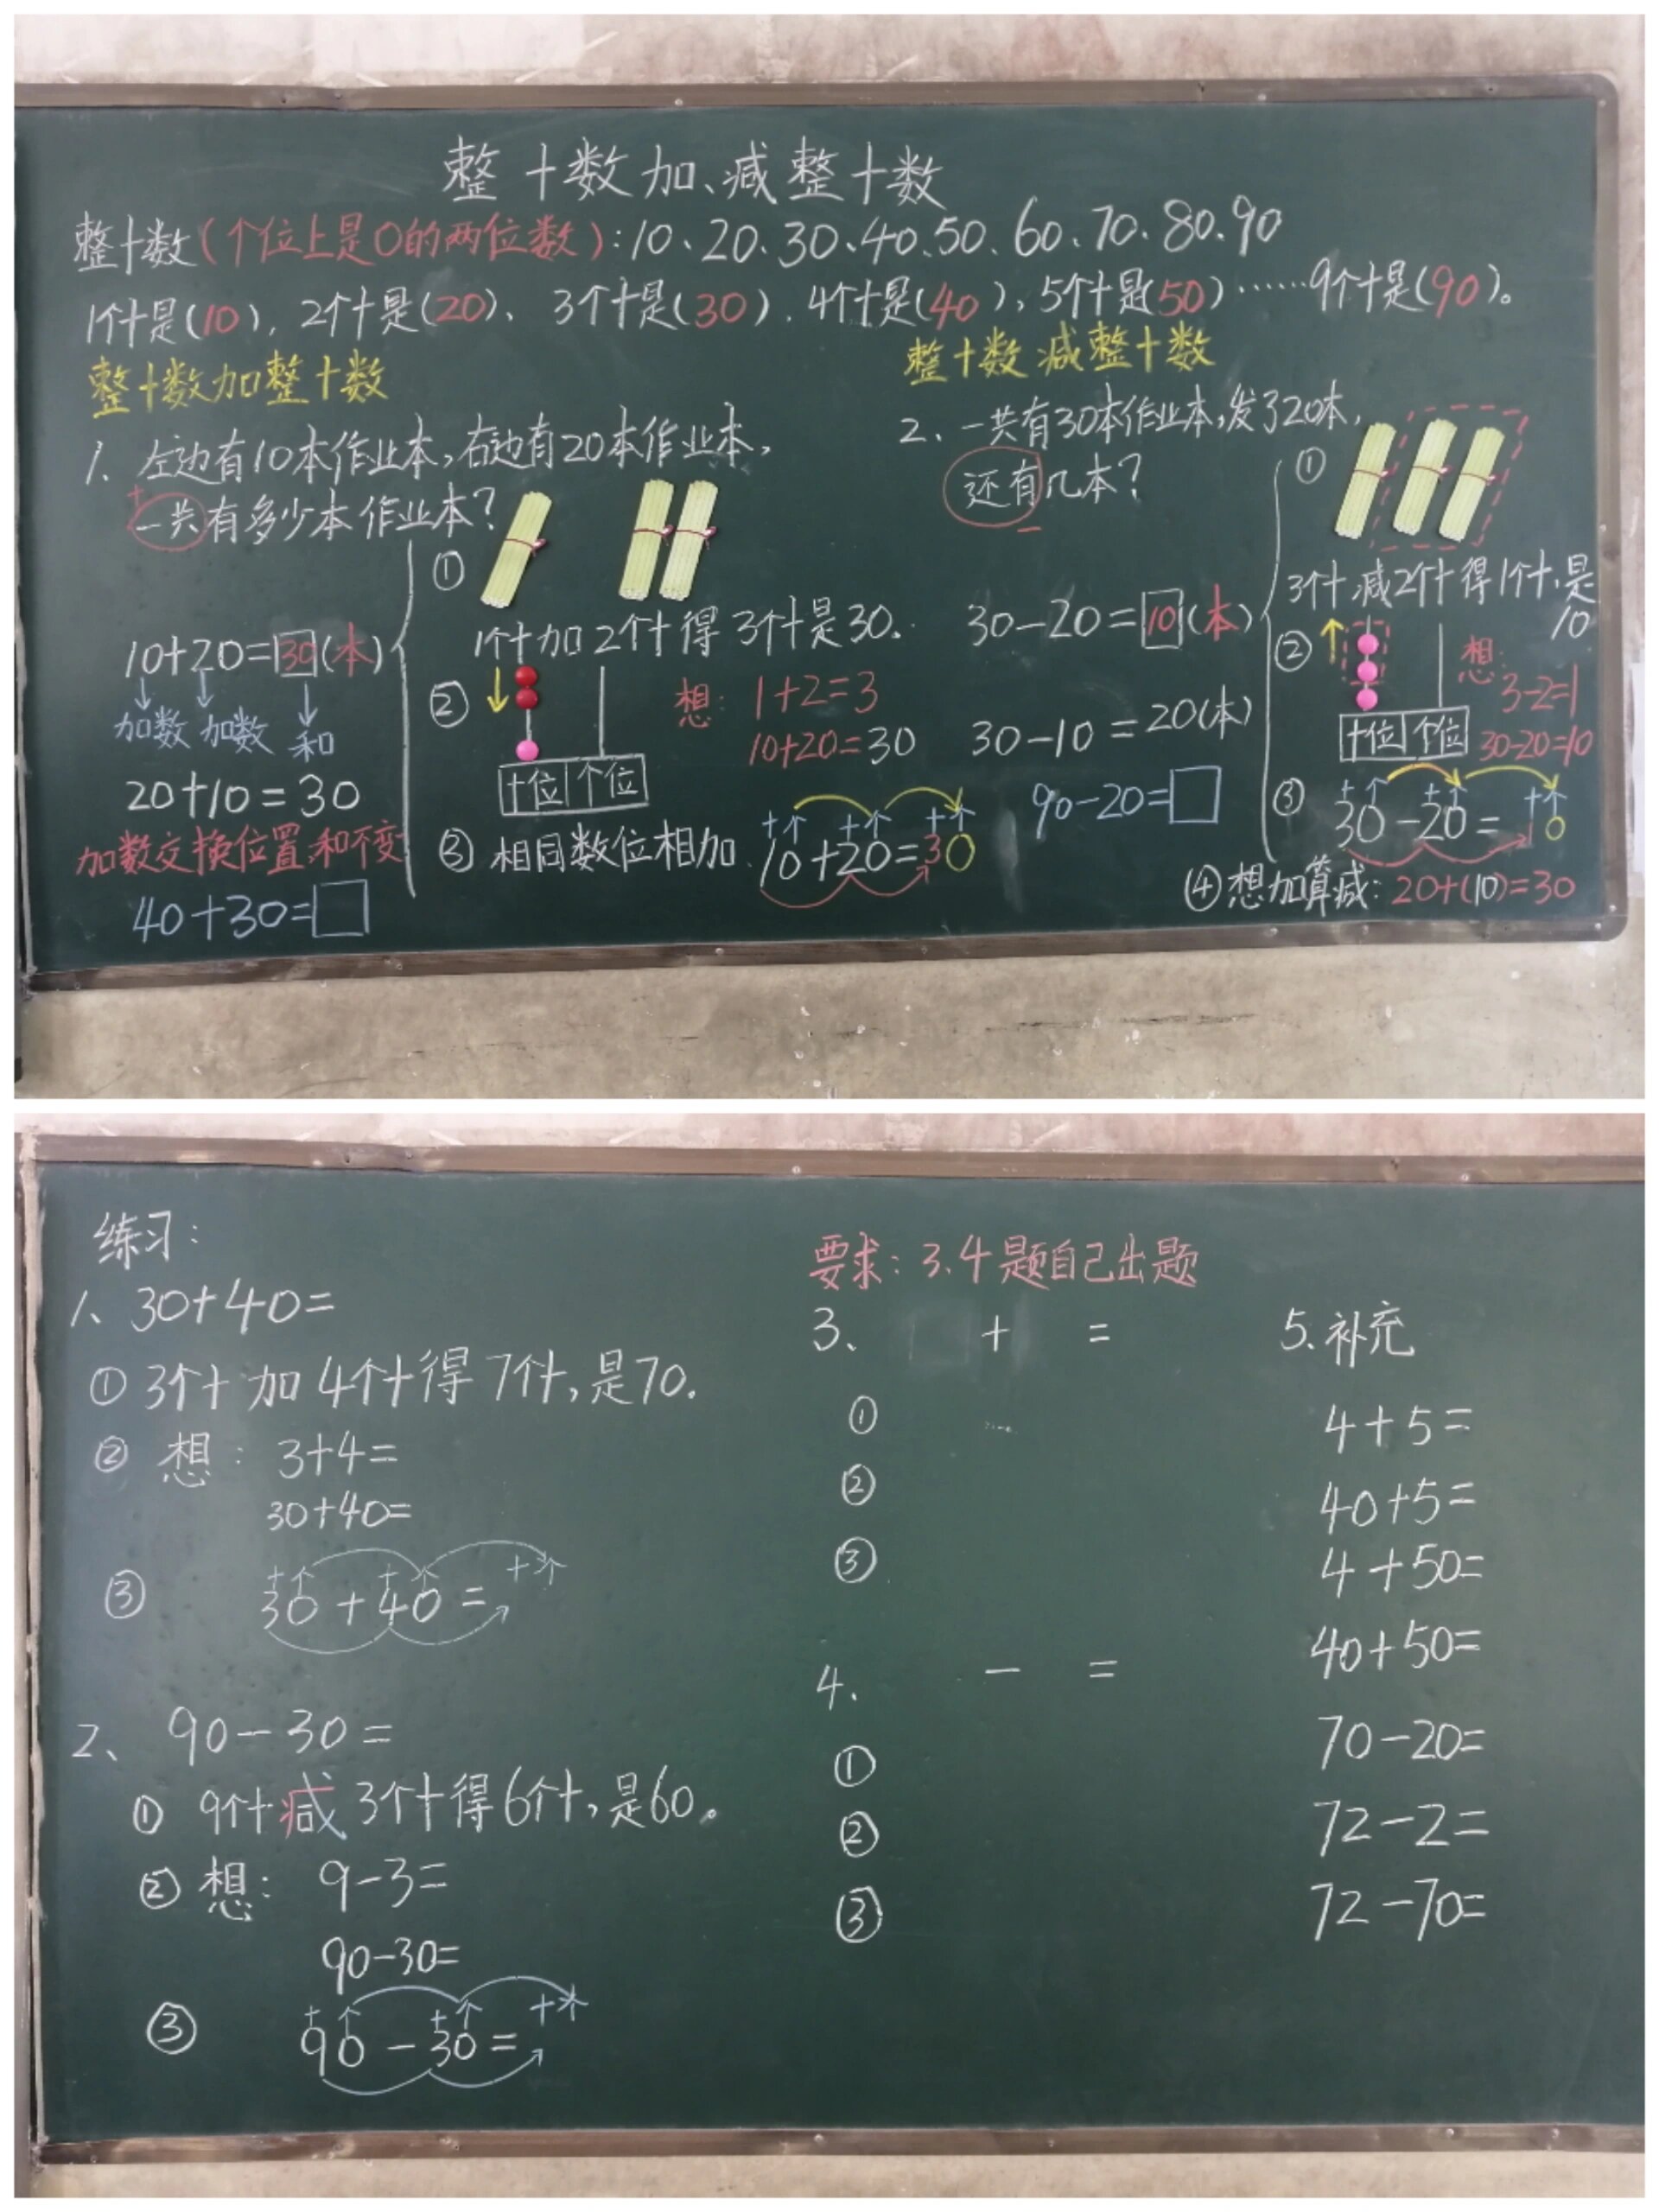 整十数加、减整十数
整十数(个位上是0的两位数):10、20、30、40、50、60、70、80、90
1个十是(10)，2个十是(20)、3个十是(30)，4个十是(40)，5个十是(50)……9个十是(90)。
整十数加整十数
1、左边有10本作业本，右边有20本作业本，
+
一共有多少本作业本?
10+20=30(本)
加数 加数 和
20+10=30
加数交换位置，和不变
40+30=□
①
1个十加2个十得3个十是30.
②
十位 个位
想: 1+2=3
10+20=30
③ 相同数位相加.
十 个 十 个 十 个
10+20=30
整十数减整十数
2、一共有30本作业本,发了20本,
还有几本?
－
30-20=10(本)
30-10=20(本)
90-20=□
①
3个十减2个十得1个十,是
10
②
十位 个位
想:
3-2=1
30-20=10
③
十 个 十 个 十 个
30-20=10
④想加算减: 20+(10)=30
练习:
1、30+40=
① 3个十加4个十得7个十,是70.
② 想: 3+4=
30+40=
③
十 个 十 个 十 个
30+40=
2、90-30=
① 9个十减3个十得6个十,是60。
② 想: 9-3=
90-30=
③
十 个 十 个 十 个
90-30=
要求: 3.4题自己出题
3、 + =
①
②
③
4. - =
①
②
③
5.补充
4+5=
40+5=
4+50=
40+50=
70-20=
72-2=
72-70=